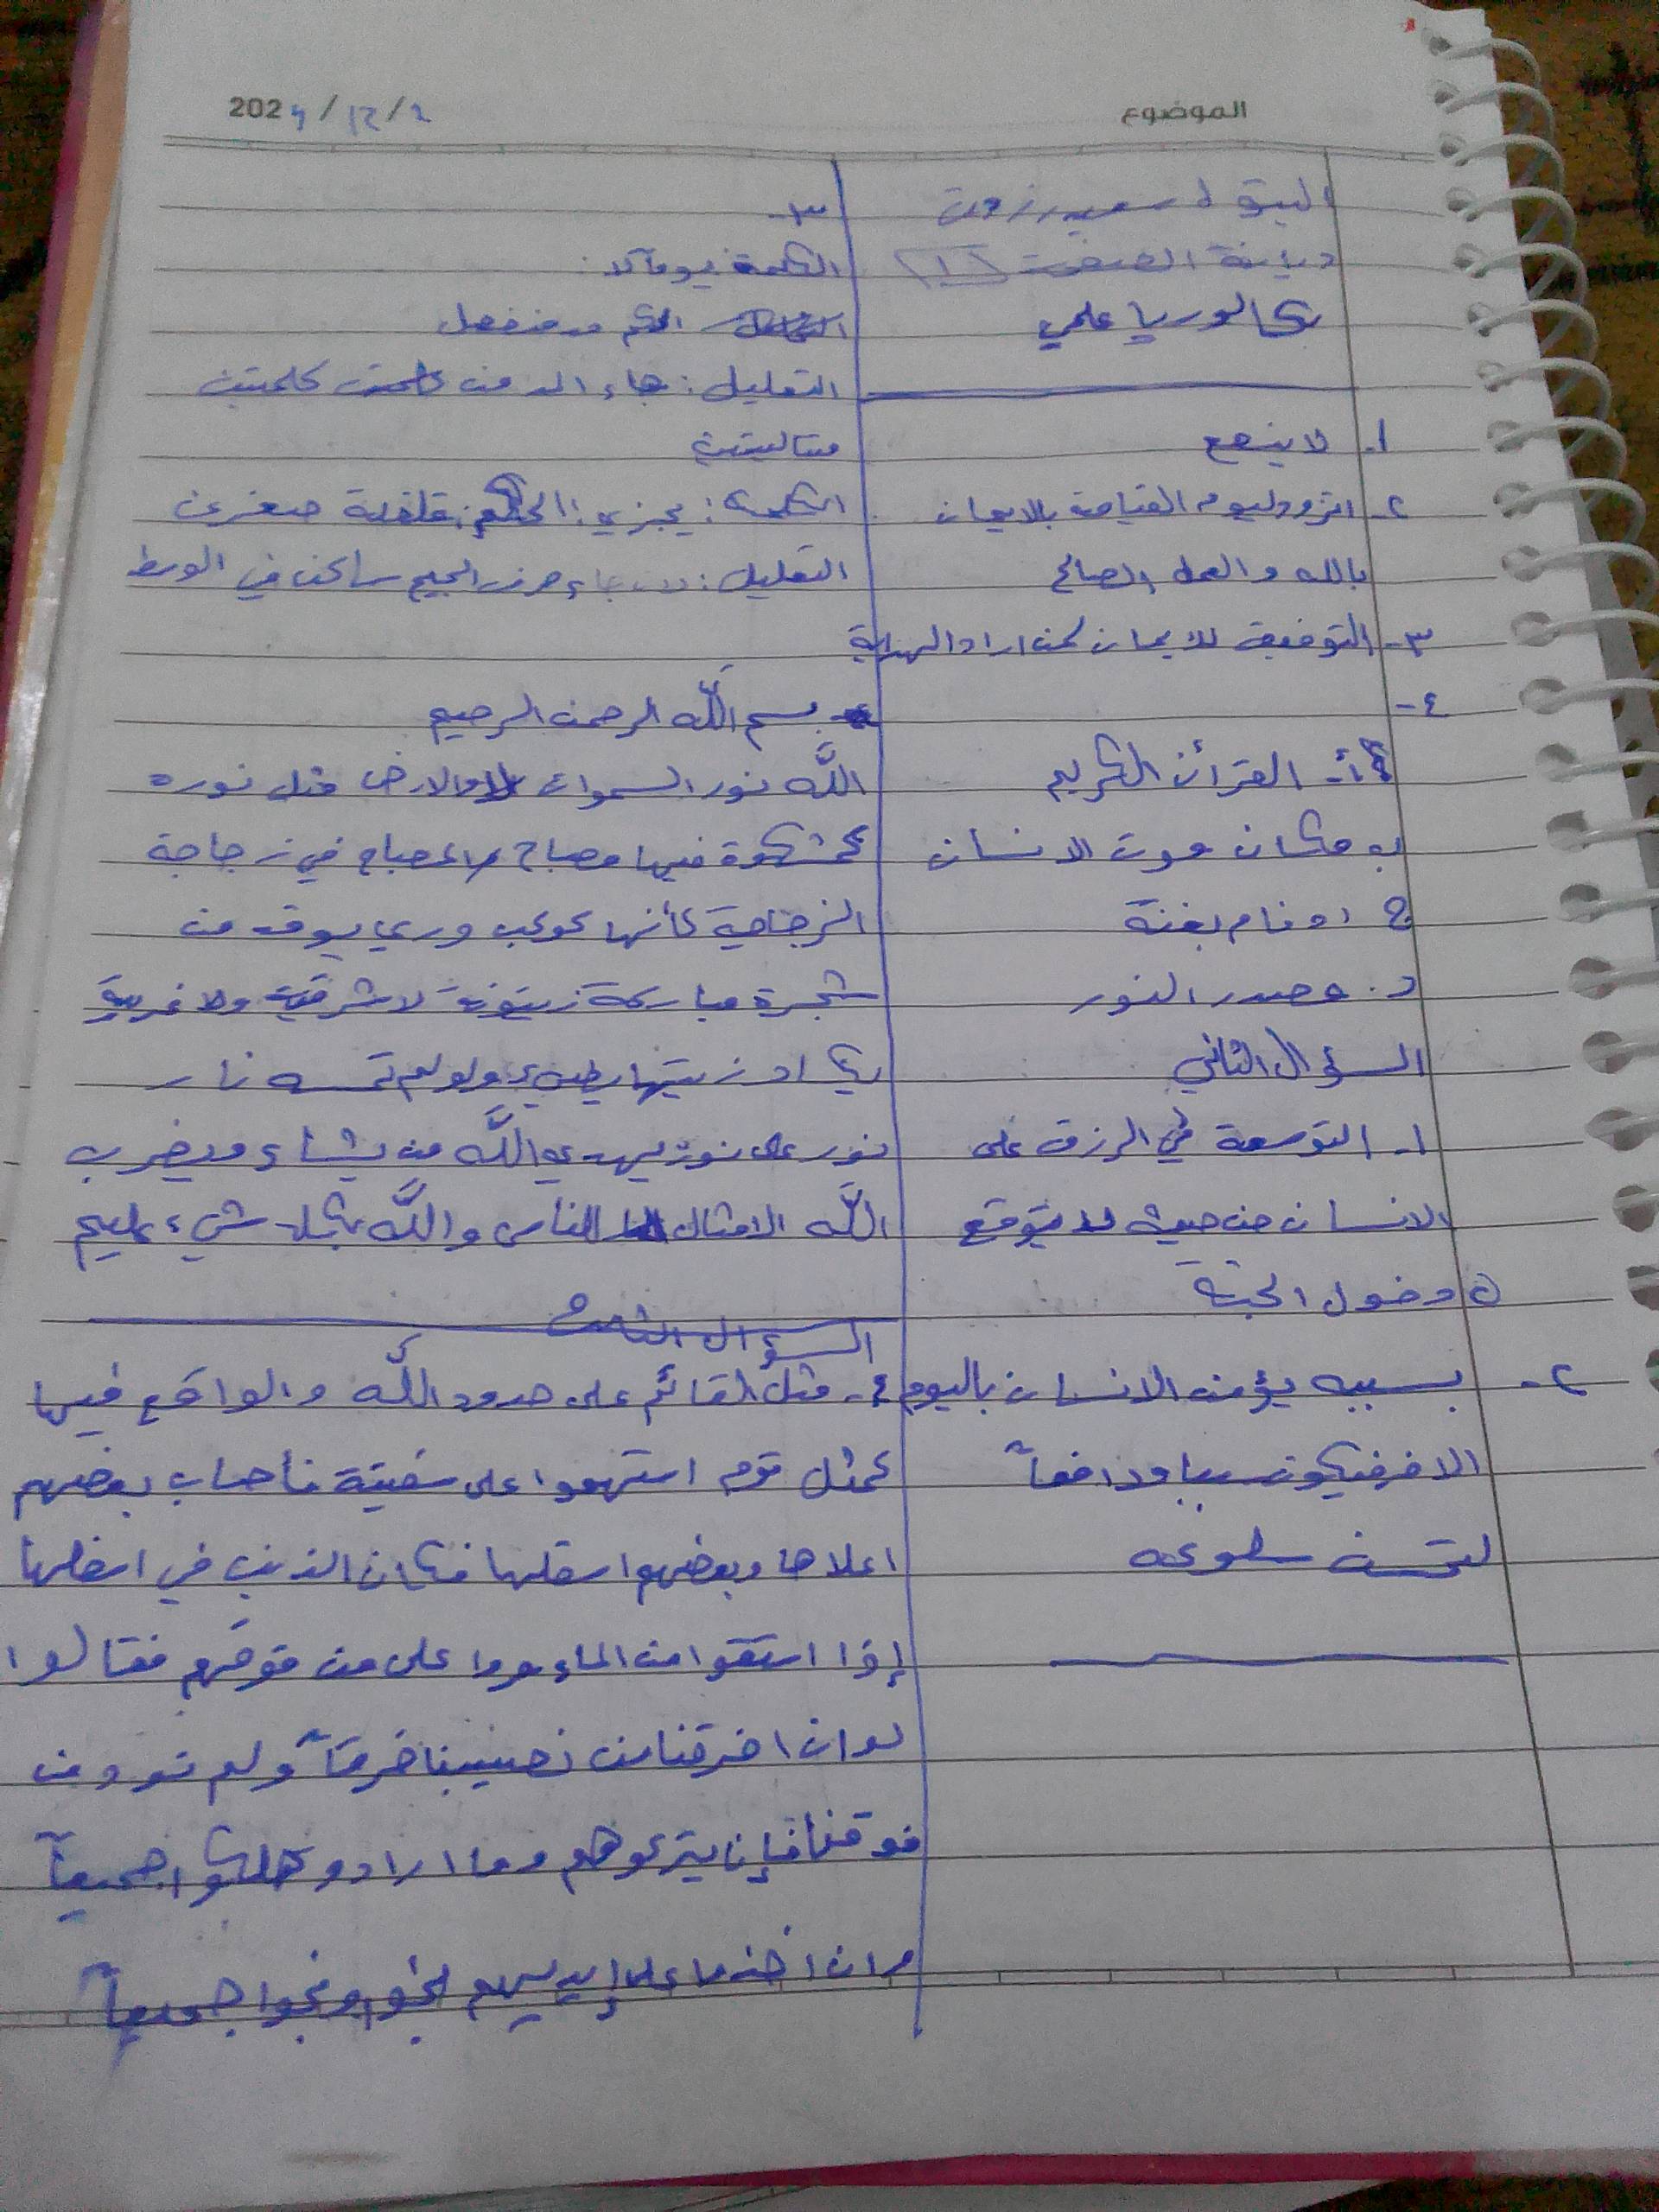 الموضوع
2024/12/2
البتول سعيد زمت
ديانة الصف
بكالوريا علمي
١- لا ينفع
٢- اتزود ليوم القيامة بالايمان
بالله والعمل الصالح
٣- التوفيق للايمان لمن اراد الهداية
٤-
أ- القرآن الكريم
ب مكان موت الانسان
ج ادغام بغنة
د. مصدر النور
السؤال الثاني
١- التوسعة في الرزق على
الانسان من حيث لا يتوقع
دخول الجنة
٢- بسببه يؤمن الانسان باليوم
الاخر فيكون سببا ودافعاً
لتحسن سلوكه
٣-
الكلمة يوماً لا:
الحكم مد منفصل
التعليل: جاء المد من كلمتين
متتاليتين
الكلمة: يجزي: الحكم: قلقلة صغرى
التعليل: جاء حرف الجيم ساكن في الوسط
بسم اللَّه الرحمن الرحيم
اللَّه نور السموات والارض مثل نوره
كمشكوة فيها مصباح المصباح في زجاجة
الزجاجة كأنها كوكب دري يوقد من
شجرة مباركة زيتونة لا شرقية ولا غربية
يكاد زيتها يضيء ولو لم تمسه نار
نور على نور يهدي اللَّه من يشاء ويضرب
اللَّه الامثال للناس واللَّه بكل شيء عليم
السؤال الثالث
٤- مثل القائم على حدود اللَّه والواقع فيها
كمثل قوم استهموا على سفينة فاصاب بعضهم
اعلاها وبعضهم اسفلها فكان الذين في اسفلها
إذا استقوا من الماء مروا على من فوقهم فقالوا
لو ان اخرقنا من نصيبنا خرقاً ولم نؤذ من
فوقنا فإن يتركوهم وما ارادو هلكوا جميعاً
وان اخذوا على إيديهم نجوا ونجوا جميعاً